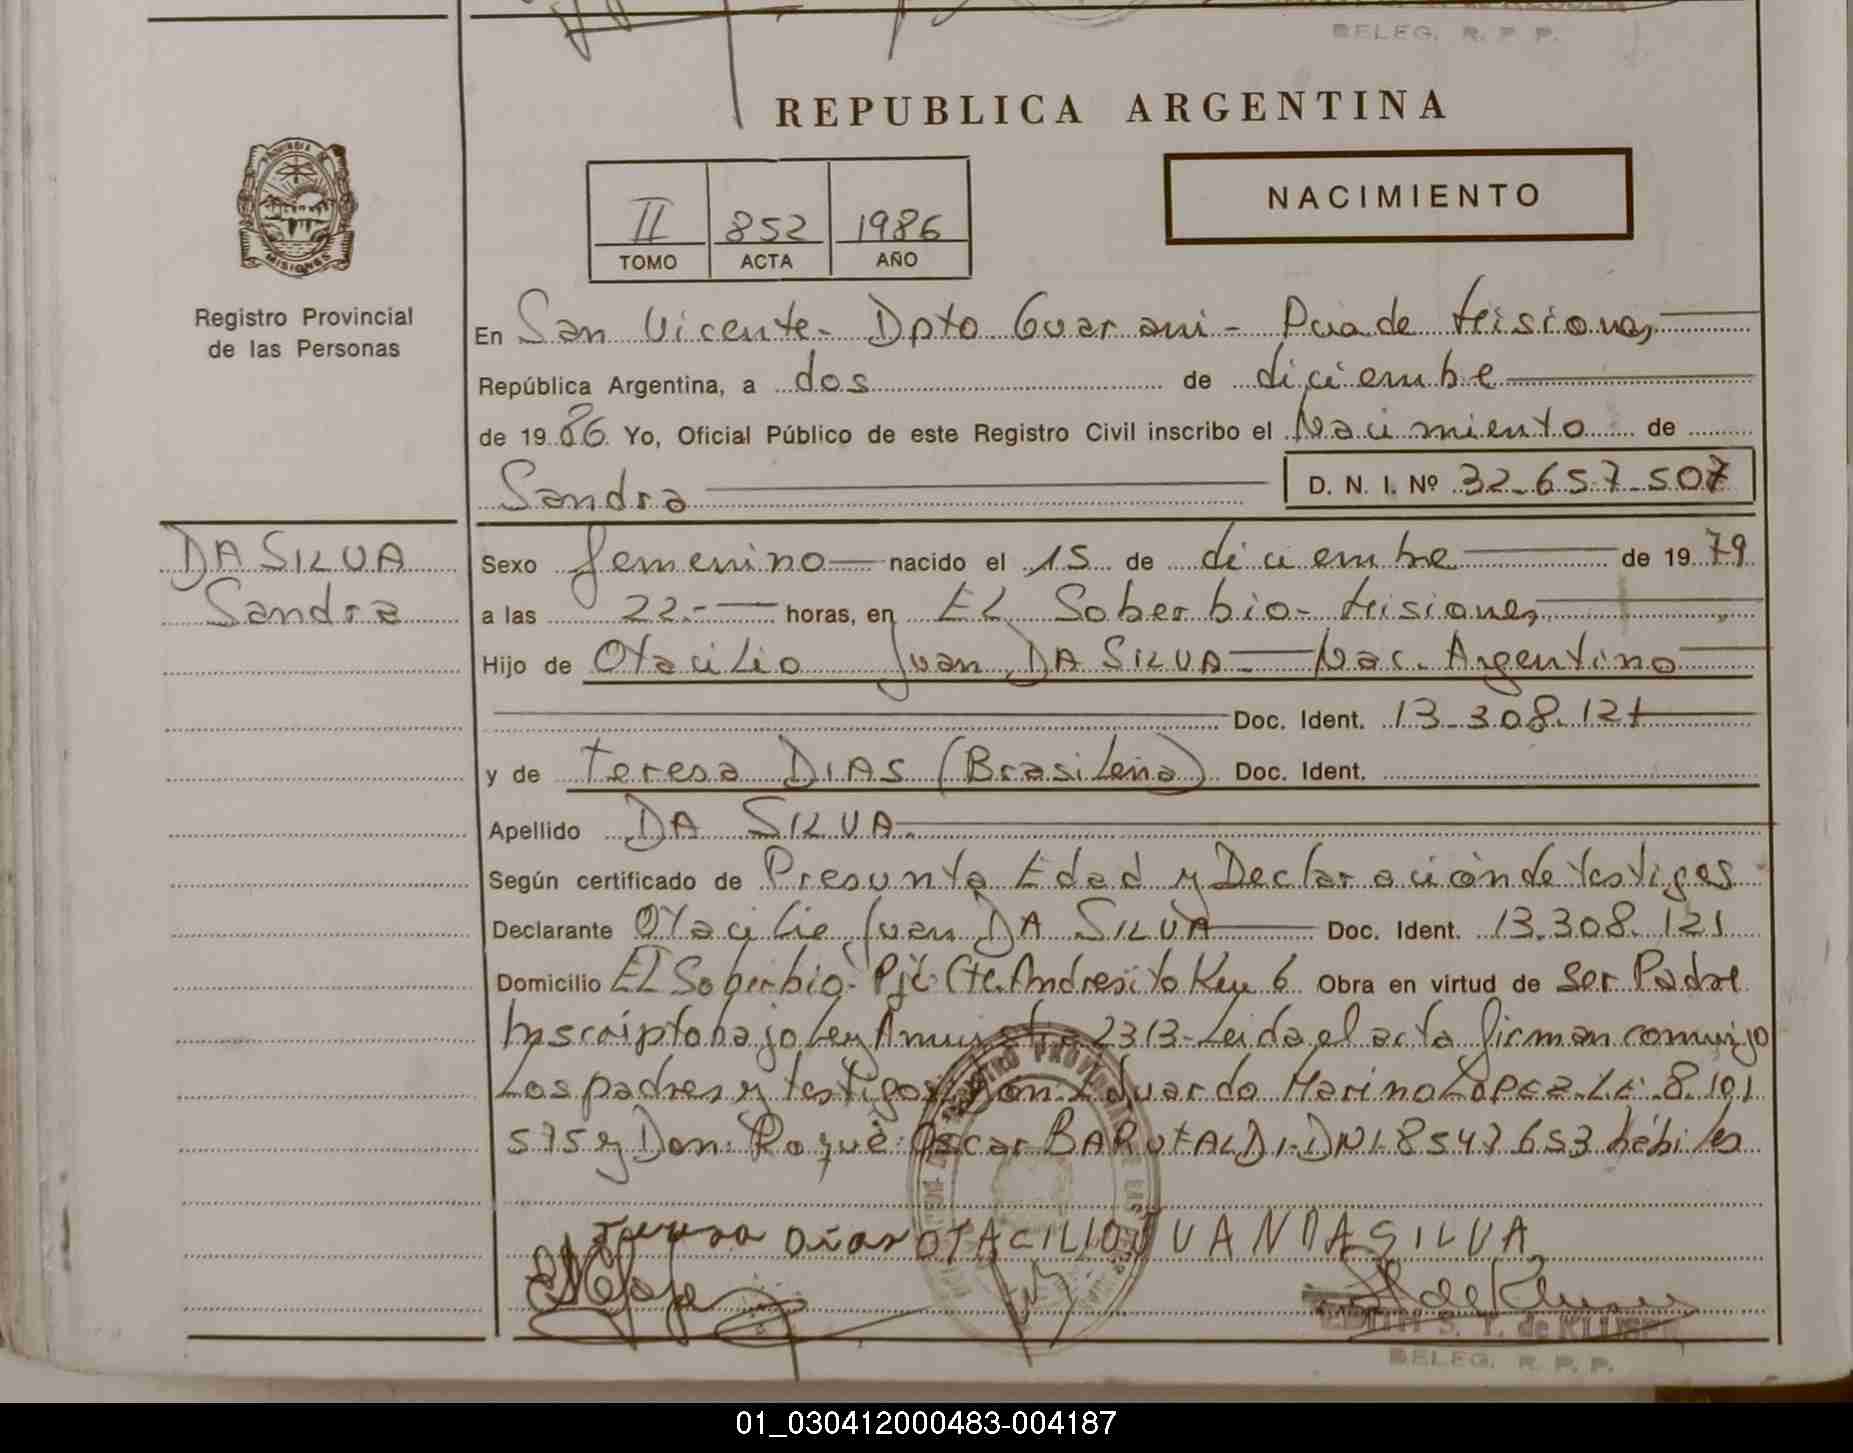 DELEG. R. P. P.
REPUBLICA ARGENTINA
PROVINCIA DE
MISIONES
NACIMIENTO
II 852 1986
TOMO ACTA AÑO
Registro Provincial
de las Personas
En San Vicente - Dpto Guarani - Pcia de Misiones
República Argentina, a dos de diciembre
de 1986 Yo, Oficial Público de este Registro Civil inscribo el Nacimiento de
Sandra D. N. I. Nº 32.657.507
DA SILVA
Sandra
Sexo femenino nacido el 15 de diciembre de 1979
a las 22.- horas, en EL Soberbio - Misiones
Hijo de Otacilio Juan DA SILVA - Nac. Argentino
Doc. Ident. 13.308.121
y de Teresa DIAS (Brasileña) Doc. Ident.
Apellido DA SILVA.
Según certificado de Presunta Edad y Declaración de testigos
Declarante Otacilio Juan DA SILVA Doc. Ident. 13.308.121
Domicilio EL Soberbio - Pje Cte. Andresito Km 6 Obra en virtud de ser Padre
Inscripto bajo Ley Amnistia 2313 - Leida el acta firman conmigo
Los padres y testigos Don: Eduardo Marino LOPEZ. LE. 8.101
575 y Don: Roque Oscar BARUTALDI - DNI 8547653 hábiles
Teresa Dias OTACILIO JUAN DA SILVA
EDITH S. T. de
DELEG. R. P. P.
01_030412000483-004187